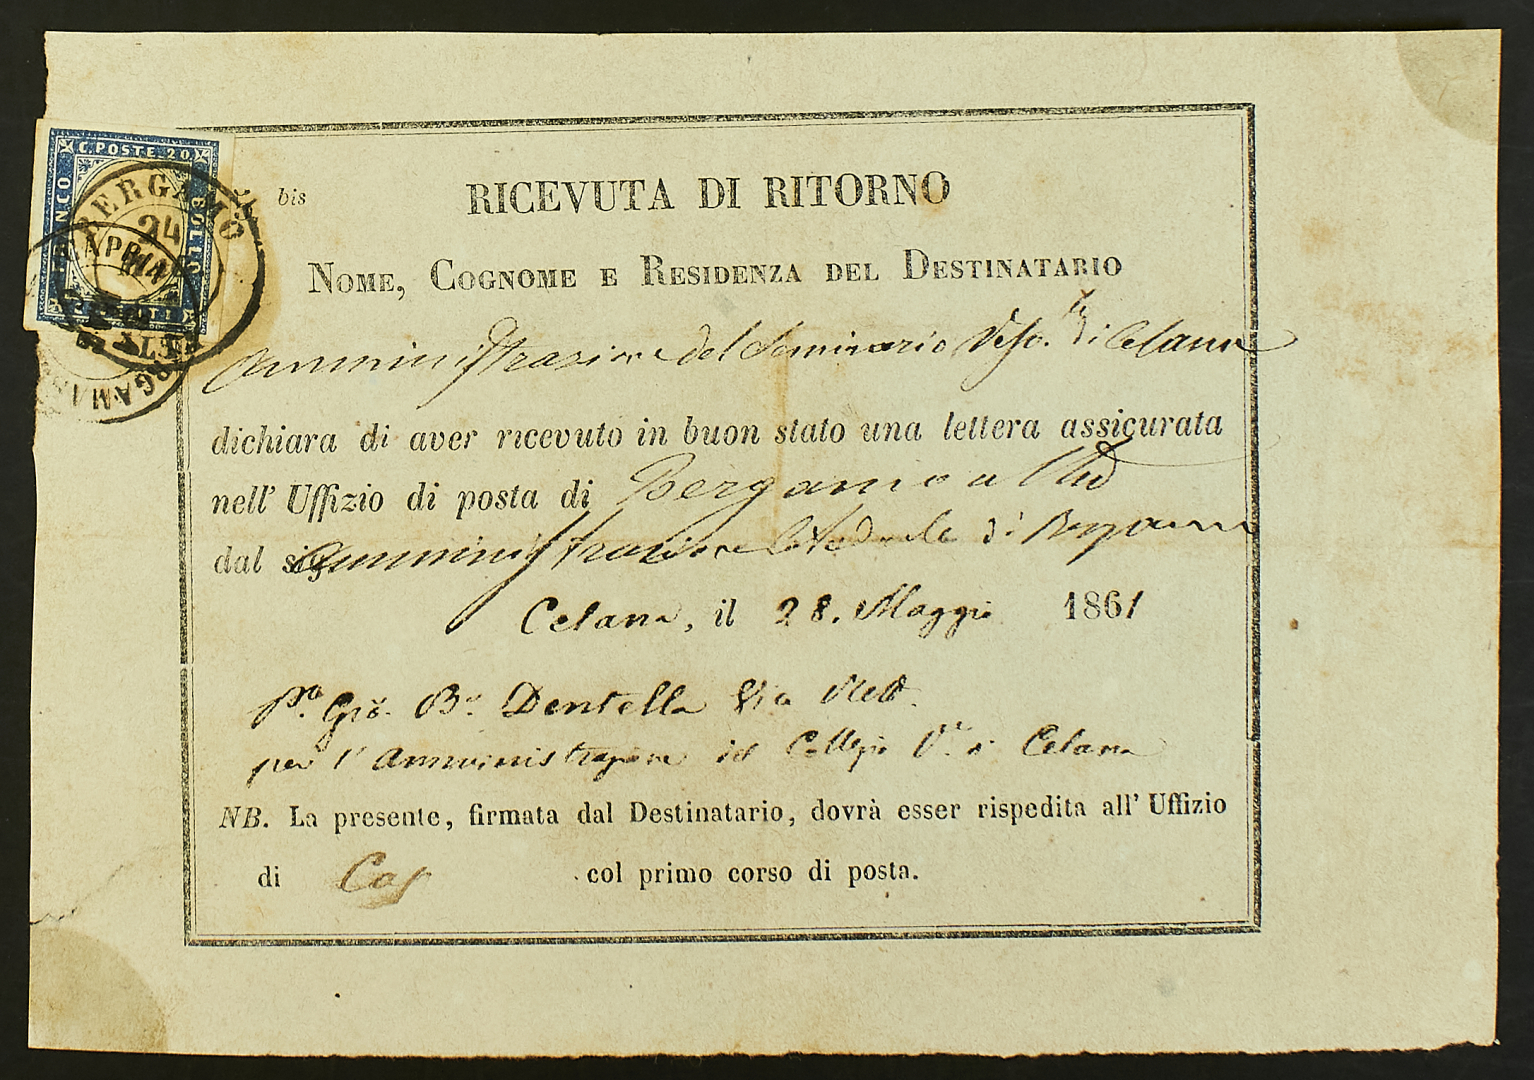 C. POSTE 20
BERGAMO
24
APR
bis
RICEVUTA DI RITORNO
NOME, COGNOME E RESIDENZA DEL DESTINATARIO
Amministrazione del Seminario Vesc. di Celana
dichiara di aver ricevuto in buon stato una lettera assicurata
nell' Uffizio di posta di Bergamo
dal sig. Amministrazione di Bergamo
Celana, il 28. Maggio 1861
Dentella
per l' Amministrazione Collegio di Celana
NB. La presente, firmata dal Destinatario, dovrà esser rispedita all' Uffizio
di col primo corso di posta.